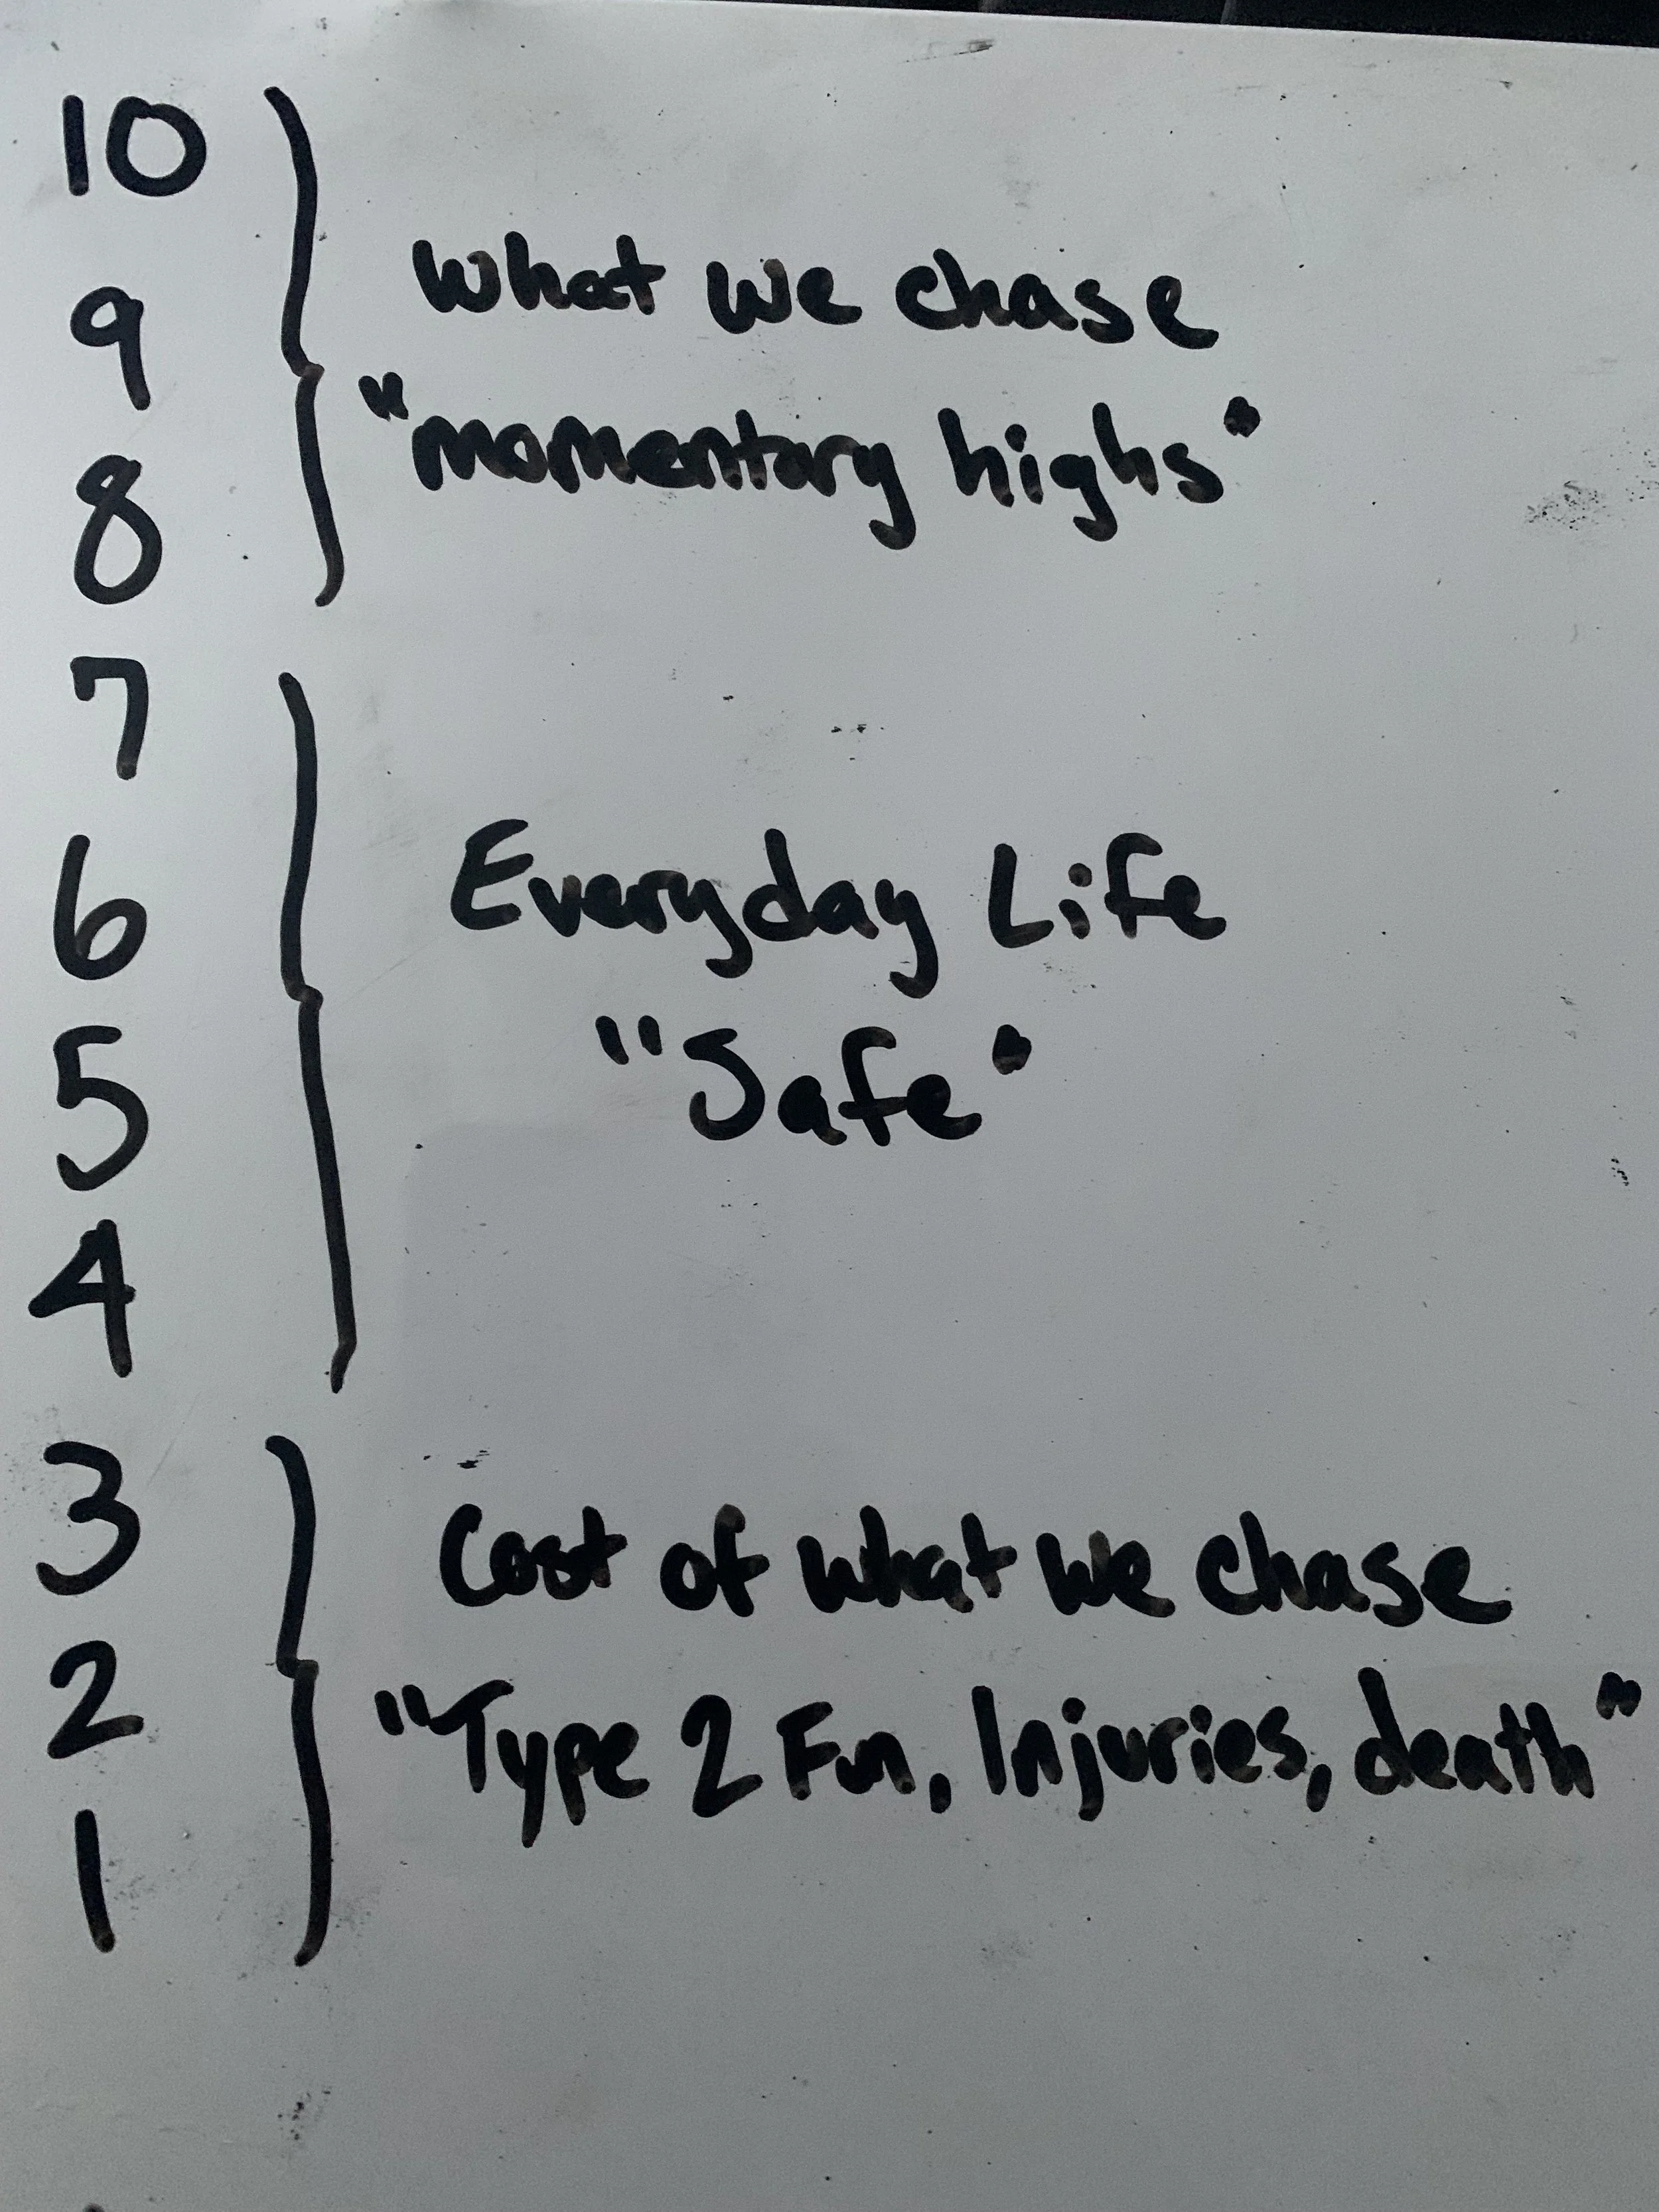 10
9
8
What we chase
"momentary highs"
7
6
5
4
Everyday Life
"Safe"
3
2
1
Cost of what we chase
"Type 2 Fun, Injuries, death"